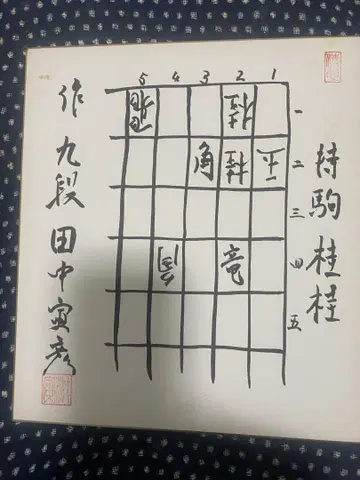 持駒 桂桂
5 4 3 2 1
一
桂
角 桂 玉
二
三
竜
四
五
作 九段 田中寅彦